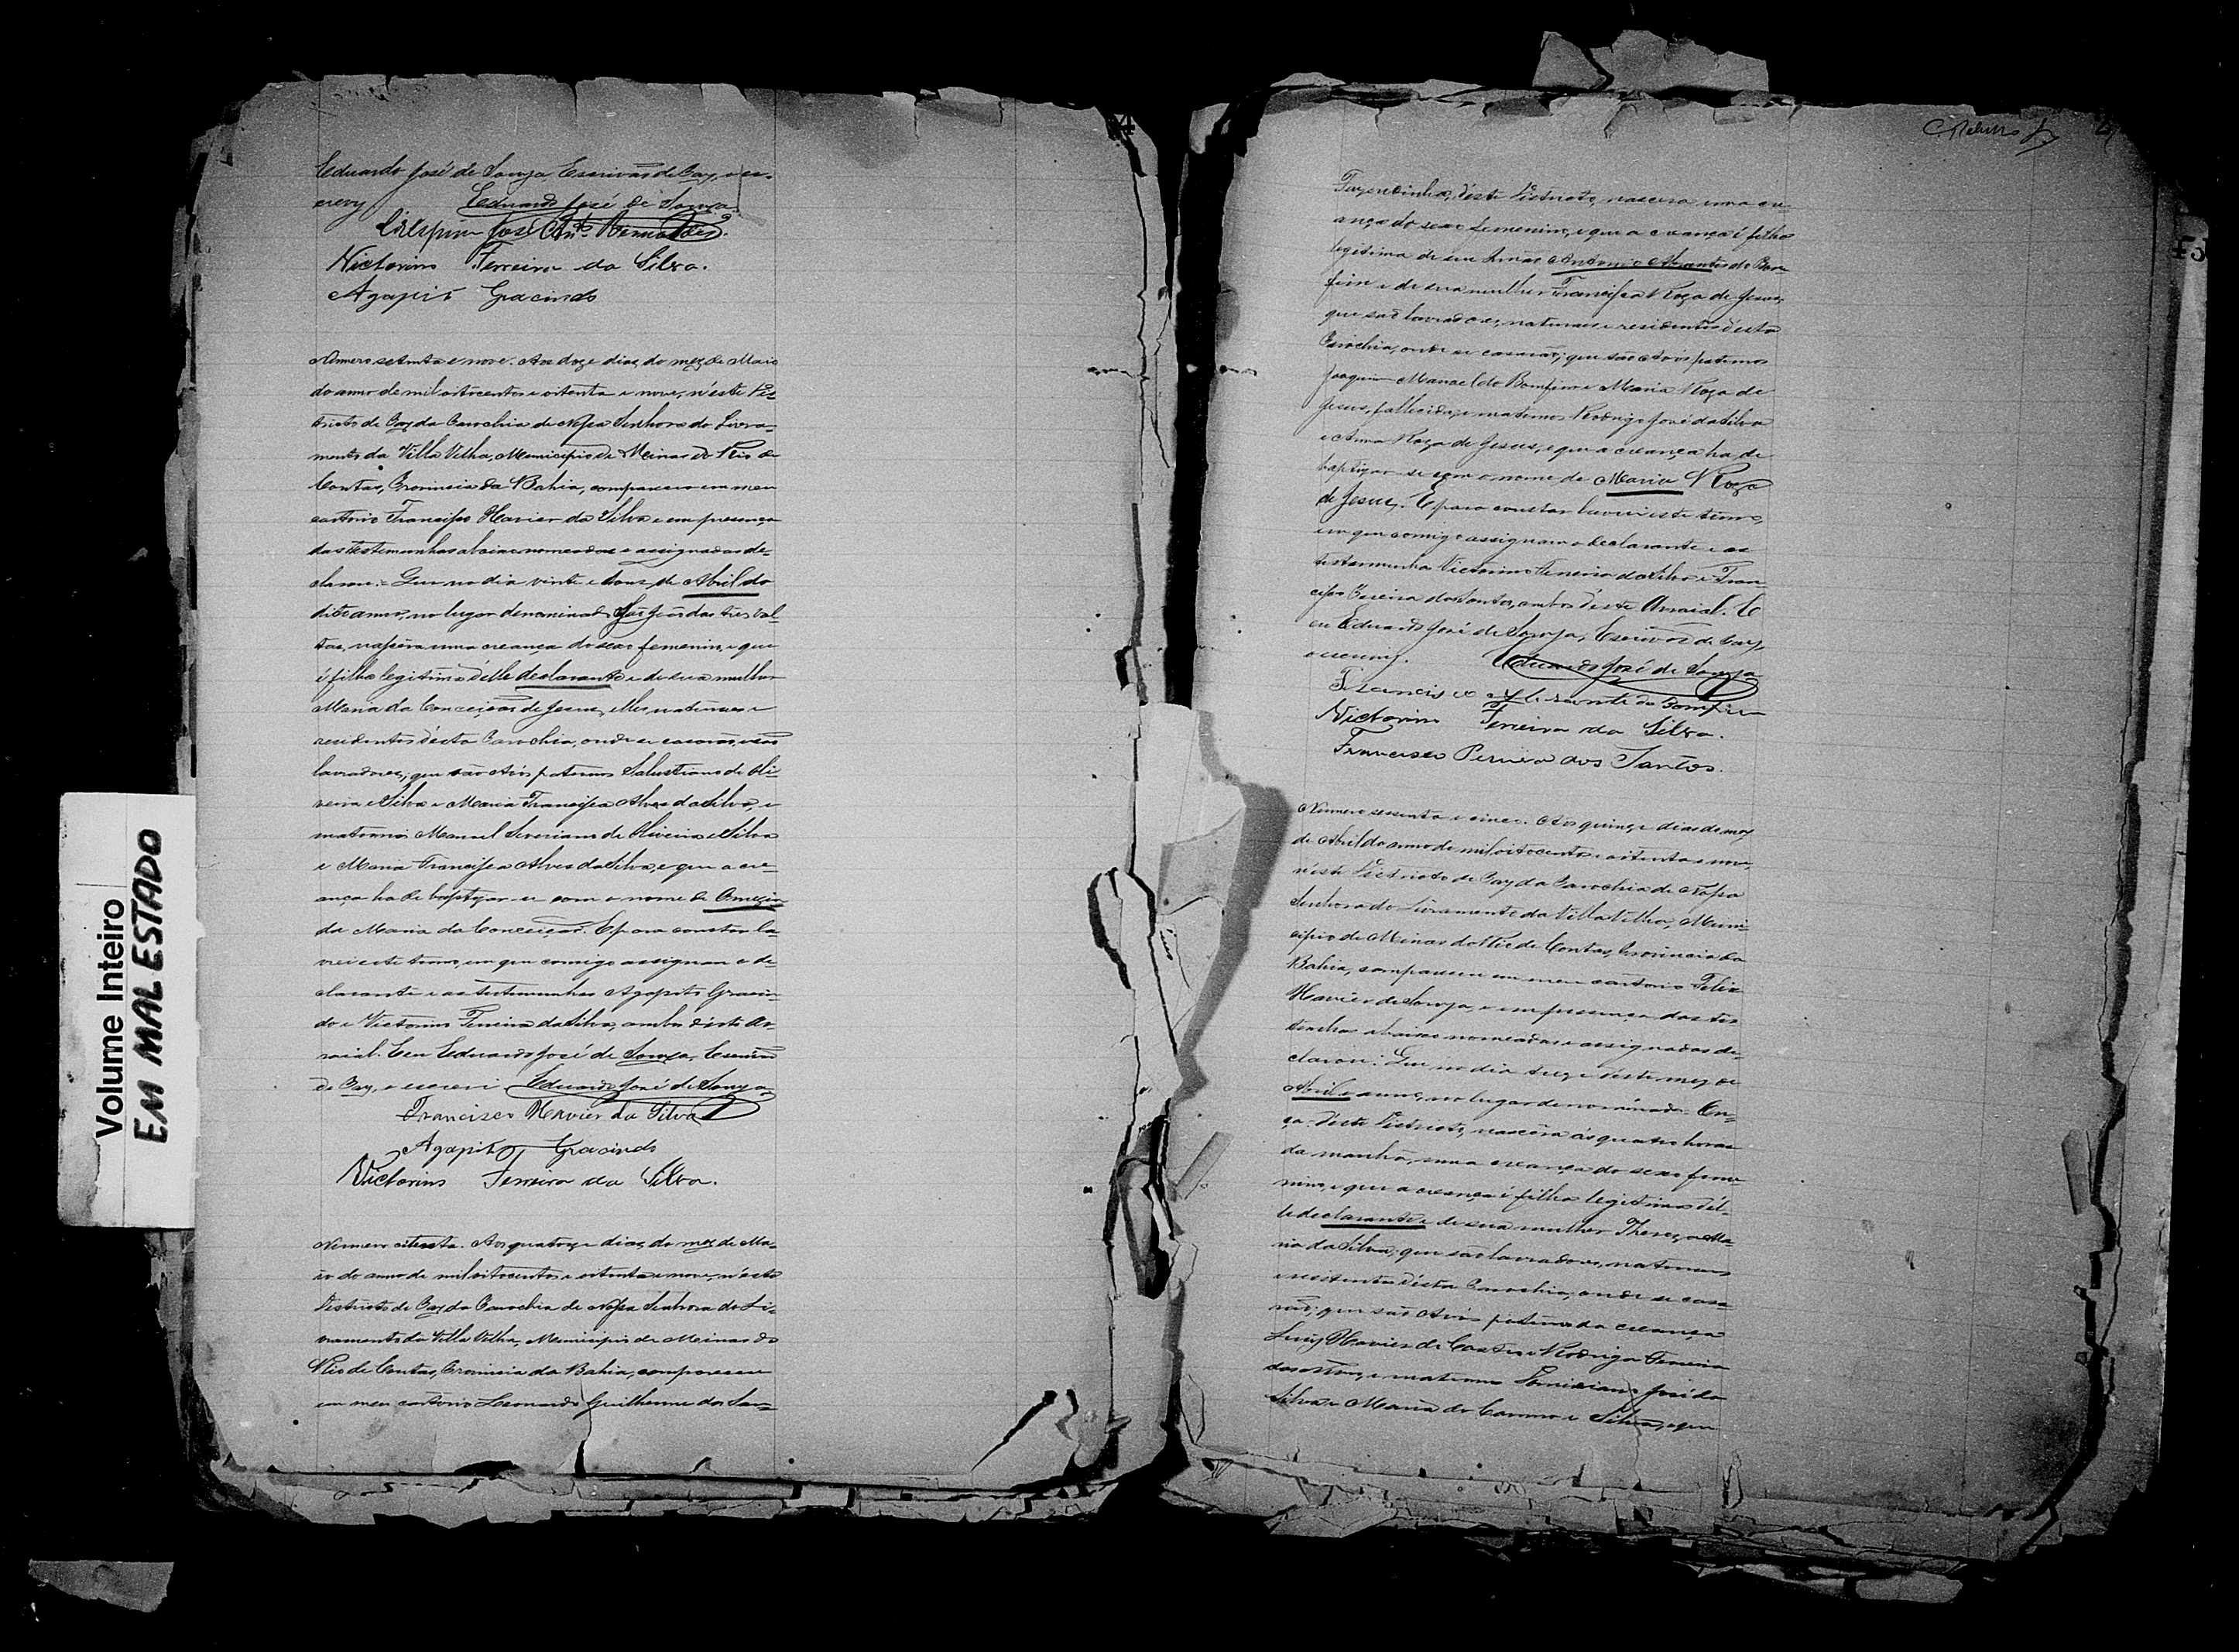 Eduardo José de Souza, Escrivão de Paz, o es-
crevy Eduardo José de Souza
Crespim José Bernardes.
Victorino Ferreira da Silva.
Agapito Gracindo
Numero setenta e nove. Aos doze dias do mez de Maio
do anno de mil oitocentos e oitenta e nove, n'este Dis-
tricto de Paz da Parochia de Nossa Senhora do Livra-
mento da Villa Velha, Municipio de Minas do Rio de
Contas, Provincia da Bahia, compareceu em meu
cartorio Francisco Xavier da Silva e em presença
das testemunhas abaixo nomeadas e assignadas de-
clarou: Que no dia vinte e dous de Abril do
dito anno, no lugar denominado das tres Vol-
tas, nascera uma creança do sexo femenino, e que
é filha legitima d'elle declarante e de sua mulher
Maria da Conceição de Jesus, elles naturaes e
residentes d'esta Parochia, onde se casarão, e são
lavradores; que são Avós paternos Salustiano de Oli-
veira e Silva e Maria Francisca Alves da Silva, e
maternos Manuel Severiano de Oliveira e Silva
e Maria Francisca Alves da Silva, e que a cre-
ança ha de baptizar-se com o nome de
da Maria da Conceição. E para constar la-
vrei este termo, em que comigo assignam o de-
clarante e as testemunhas Agapito Gracin-
do e Victorino Ferreira da Silva, ambos d'este Ar-
raial. E eu Eduardo José de Souza, Escrivão
de Paz, o escrevi Eduardo José de Souza
Francisco Xavier da Silva
Agapito Gracindo
Victorino Ferreira da Silva.
Numero oitenta. Aos quatorze dias do mez de Ma-
io do anno de mil oitocentos e oitenta e nove, n'este
Districto de Paz da Parochia de Nossa Senhora do Li-
vramento da Villa Velha, Municipio de Minas do
Rio de Contas, Provincia da Bahia, compareceu
em meu cartorio Leonardo Guilherme dos San-
Volume Inteiro
EM MAL ESTADO
Fazendinha, d'este Districto, nascera uma cre-
ança do sexo femenino, e que a creança é filha
legitima de seu Irmão Antonio Abrantes do Bom
fim e de sua mulher Francisca Roza de Jesus,
que são lavradores, naturaes e residentes d'esta
Parochia, onde se casarão; que são Avós paternos
Joaquim Manael do Bomfim e Maria Roza de
Jesus, fallecidos, e maternos Rodrigo José da Silva
e Anna Roza de Jesus, e que a creança ha de
baptizar-se com o nome de Maria Roza
de Jesus. E para constar lavrei este termo,
em que comigo assignam o declarante e as
testemunha Victorino Ferreira da Silva e Fran-
cisco Pereira dos Santos, ambos d'este Arraial. E
eu Eduardo José de Souza, Escrivão de Paz,
o escrevy. Eduardo José de Souza
Francisco Abrante do Bomfim
Victorino Ferreira da Silva.
Francisco Pereira dos Santos.
Numero sessenta e cinco. Aos quinze dias do mez
de Abril do anno de mil oitocentos e oitenta e nove,
n'este Districto de Paz da Parochia de Nossa
Senhora do Livramento da Villa Velha, Muni-
cipio de Minas do Rio de Contas, Provincia da
Bahia, compareceu em meu cartorio Felix
Xavier de Souza, e em presença das tes
temunhas abaixo nomeadas e assignadas de-
clarou: Que no dia treze d'este mez de
Abril e anno, no lugar denominado
d'este Districto, nascera ás quatro horas
da manhã, uma creança do sexo feme-
nino, e que a creança é filha legitima d'el-
le declarante e de sua mulher Thereza Ma-
ria da Silva, que são lavradores, naturaes
e residentes d'esta Parochia, onde se casa
rão; que são Avós paternos da creança
Luiz Xavier de Castro e Rodriga Ferreira
e maternos José da
Silva e Maria do Carmo e Silva, e que